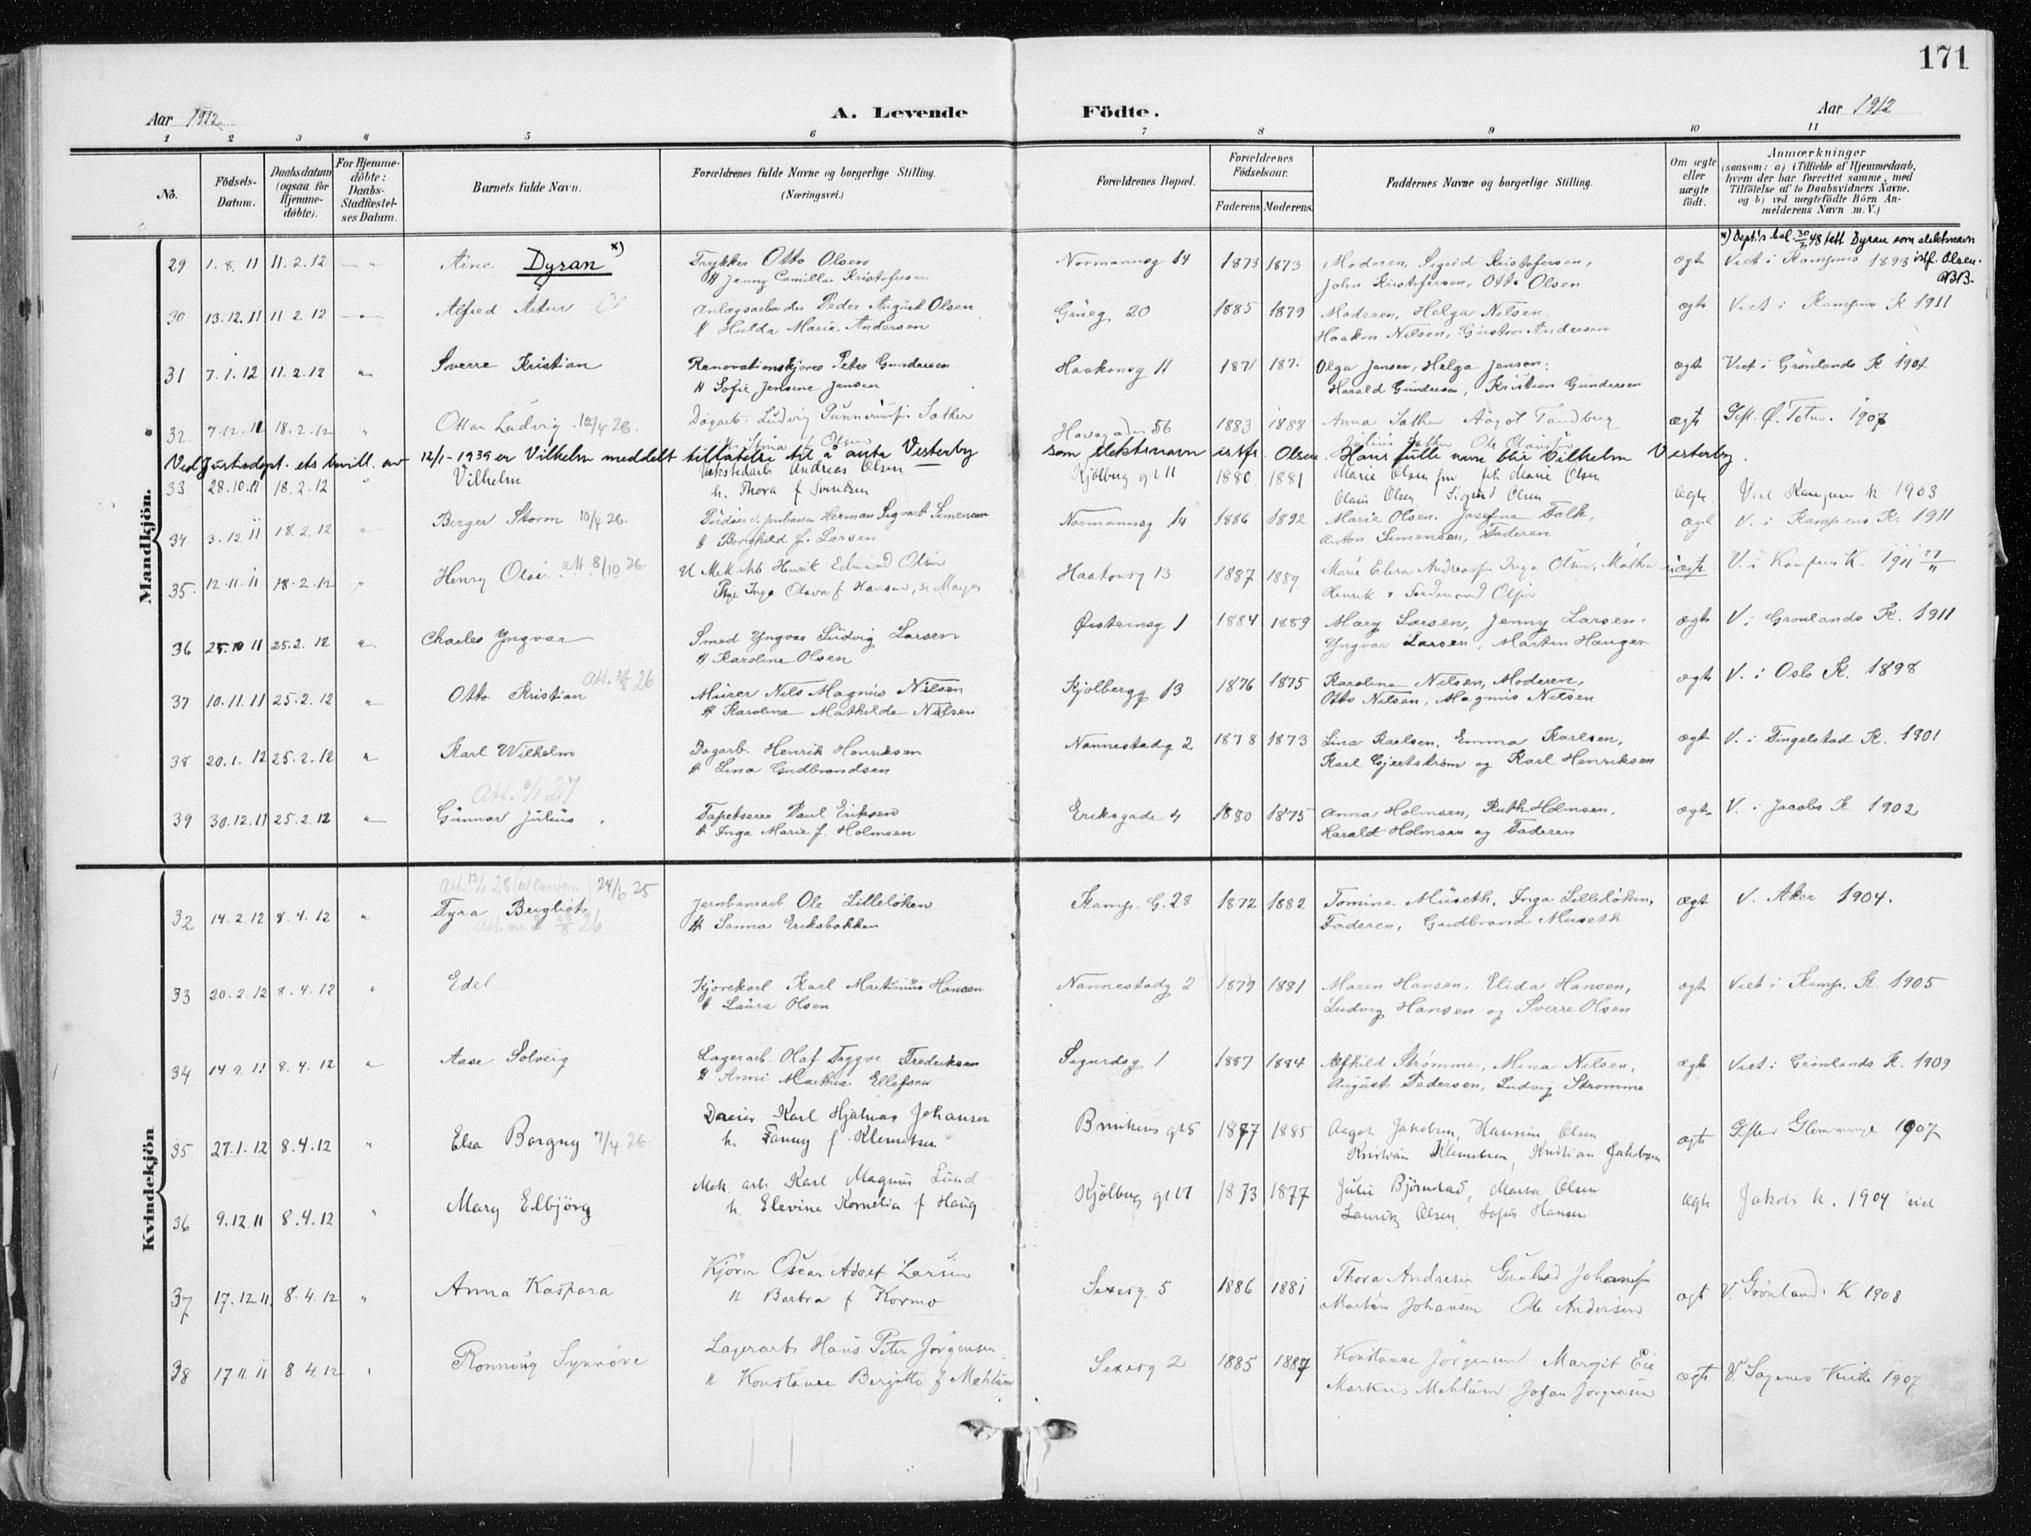 171
Aar 1912
A. Levende Födte.
Aar 1912
1 2 3 4 5 6 7 8 9 10 11
No.
Födsels-Datum.
Daabsdatum (ogsaa for Hjemme-döbte).
For Hjemme-döbte: Daabs-Stadfæstel-ses Datum.
Barnets fulde Navn.
Forældrenes fulde Navne og borgerlige Stilling. (Næringsvei.)
Forældrenes Bopæl.
Forældrenes Födselsaar.
Faderens. Moderens.
Faddernes Navne og borgerlige Stilling.
Om ægte eller uægte födt.
Anmærkninger
(saasom: a) i Tilfælde af Hjemmedaab, hvem der har forrettet samme, med Tilföielse af to Daabsvidners Navne, og b) ved uægtefödte Börn An-melderens Navn m. V.)
Mandkjön.
x) Dept.s bev. 30/3 48 tatt Dyran som slektsnavn
29 1.8.11 11.2.12 — " Arne Dyran x) Trykker Otto Olsen Normannsg 14 1873 1873 Moderen, Sigrid Kristofersen, ægte Viet i Kampens 1893 istf. Olsen.
H Jenny Camilla Kristofersen John Kristofersen, Otto Olsen
30 13.12.11 11.2.12 Alfred Artur Anlægsarbeider Peder August Olsen Grüeg. 20 1885 1879 Moderen, Helga Nilsen ægte Viet i Kampens K 1911
H Hulda Marie Andersen Haakon Nilsen, Gustav Andersen
31 7.1.12 11.2.12 " Sverre Kristian Renovationskjører Peter Gundersen Haakonsg 11 1871 187. Olga Jensen, Helga Jensen, ægte Viet i Grønlands K 1907
H Sofie Jensine Jensen Harald Gundersen, Kristian Gundersen
32 7.12.11 18.2.12 " Ottar Ludvig 10/4 26. Dagarb. Ludvig Gunneriusen Sæther Havegaden 56 1883 1888 Anna Sæther Aagot Tandberg ægte Gift. Ø. Toten. 1907
Stina f. Olsen Julius Sæther Ole Olaussen
Ved Justisdept. ets bevill. av 12/1-1939 er Vilhelm meddelt tillatelse til å anta Vesterby som slektsnavn istf. Olsen. Hans fulle navn blir Vilhelm Vesterby.
33 28.10.11 18.2.12 " Vilhelm Værkstedarb Andreas Olsen Kjølberg gt 11 1880 1881 Marie Olsen fru frk Marie Olsen ægte. Viet Kampens k 1903
h. Thora f Svendsen Olaus Olsen Sigurd Olsen
34 3.12.11 18.2.12 " Berger Storm 10/4 26. Pudser v. jernbanen Herman Sigvart Simensen Normannsg 14 1886 1892 Marie Olsen. Josefine Falk, ægt V. i Kampens K. 1911
H Borghild f. Larsen Anton Simensen, Faderen
35. 12.11.11 18.2.12 " Henry Olai att. 8/10 26 U Mek Arb Henrik Edmund Olsen Haakonsg 13 1887 1889 Marie Elisa Andreassen Inga Olsen, Malka uægte V. i Kampens K. 1911 27/11
Pige Inga Olava f Hansen, Henrik & Ferdinand Olsen
36 25.10 11 25.2.12 " Charles Yngvar Smed Yngvar Ludvig Larsen Øisteinsg 1 1884 1889 Mary Larsen, Jenny Larsen. ægte V. i Grønlands K. 1911
H Karoline Olsen Yngvar Larsen, Martin Hauger
37 10.11.11 25.2.12 " Otto Kristian Att. 26 Murer Nils Magnus Nilsen Kjølbergg 13 1876 1875 Karoline Nilsen, Moderen, ægte V. i Oslo K. 1898
H Karoline Mathilde Nilsen Otto Nilsen, Magnus Nilsen
38 20.1.12 25.2.12 " Karl Wilhelm Dagarb. Henrik Henriksen Nannestadg 2 1878 1873 Lina Karlsen, Emma Karlsen, ægte V. i Tingelstad K. 1901
H Lina Gudbrandsen Karl Gjertstrøm og Karl Henriksen
Att. 27
39 30.12.11 25.2.12 " Gunnar Julius Tapetserer Paul Eriksen Eriksgade 4 1880 1875 Anna Holmsen, Ruth Holmsen, ægte V. i Jacobs K. 1902
H Inga Marie f. Holmsen Harald Holmsen og Faderen
Kvindekjön
Att. 28 24/6 25
32 14.2.12 8.4.12 " Tyra Bergliot Jernbanearb Ole Lilleløken Kamp. G. 28 1872 1882 Tomine Müseth, Inga Lilleløken, ægt V. Aker 1904.
H Sanna Eriksbakken Faderen, Gudbrand Museth
33 20.2.12 8.4.12 " Edel Kjørekarl Karl Martinius Hansen Nannestadg 2 1879 1881 Maren Hansen, Elida Hansen, ægt Viet i Kamp. K. 1905
H Laura Olsen Ludvig Hansen og Sverre Olsen
34 14.9.11 8.4.12 " Aase Solveig Lagerarb. Olaf Tryggve Fredriksen Sigurdsg 1 1887 1884 Alfhild Strømme, Mina Nilsen, ægte Viet i Grønlands K. 1909
H Anni Marthea Ellefsen August Pedersen, Ludvig Strømme
35 27.1.12 8.4.12 " Elsa Borgny 7/4 26. Dreier Karl Hjalmar Johansen gt 5 1877 1885 Aagot Jakobsen, Hansine Olsen ægte Gifter Glemminge 1907
h. Fanny f. Klemetsen Kristian Klemetsen, Kristian Jakobsen
36 9.12.11 8.4.12 " Mary Elbjörg Mek. arb Karl Magnus Lund Kjølberg gt 17 1873 1877 Julie Björnstad, Marta Olsen ægte Jakobs k. 1904 viet
h. Elevine Kornelia f Haug Laurits Olsen Hansen
37 17.12.11. 8.4.12 " Anna Kaspara Kjörer Oscar Adolf Larsen Sexesg 5 1886 1881 Thora Andersen Gunhild Johansen ægt V. Grønland. K 1908
H Barbra f Kormo Martin Johansen Ole Andersen
38 17.11.11 8 4 12 " Ronnaug Synnöve Lagerarb Hans Peter Jörgensen Sexesg 2 1885 1887 Konstanse Jörgensen Margit Eie ægte V. Sagenes Kirke 1907
H Konstanse Bergitte f Mehlum Markus Mehlum Johan Jørgensen